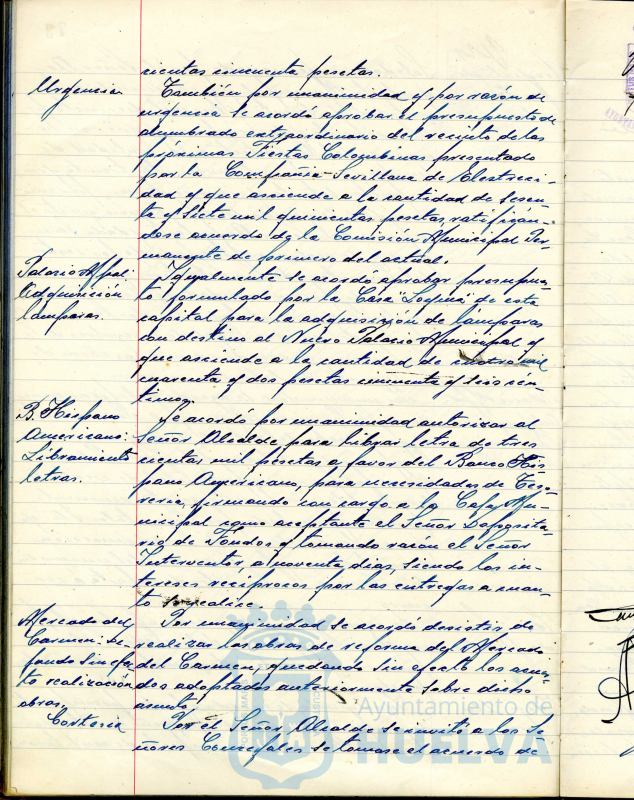 cientas cincuenta pesetas.
Urgencia
También por unanimidad y por razón de
urgencia se acordó aprobar el presupuesto de
alumbrado extraordinario del recinto de las
próximas Fiestas Colombinas presentado
por la Compañía Sevillana de Electrici-
dad y que asciende a la cantidad de sesen-
ta y siete mil quinientas pesetas ratifican-
dose acuerdo de la Comisión Municipal Per-
manente de primero del actual.
Palacio Mpal.
Adquisición
lámparas.
Igualmente se acordó aprobar presupues-
to formulado por la Casa de esta
capital para la adquisición de lámparas
con destino al Nuevo Palacio Municipal y
que asciende a la cantidad de cuatro mil
cuarenta y dos pesetas cincuenta y seis cén-
timos.
B. Hispano
Americano:
Libramiento
letras.
Se acordó por unanimidad autorizar al
Señor Alcalde para librar letra de tres
cientas mil pesetas a favor del Banco His-
pano Americano, para necesidades de Teso-
rería, firmando con cargo a la Caja Mu-
nicipal como aceptante el Señor Deposita-
rio de Fondos y tomando razón el Señor
Interventor, a noventa días, siendo los in-
tereses recíprocos por las entregas a cuan-
to se realice.
Mercado del
Carmen:
sin efec-
to realización
obras.
Por unanimidad se acordó desistir de
realizar las obras de reforma del Mercado
del Carmen, quedando sin efecto los acuer-
dos adoptados anteriormente sobre dicho
asunto.
Cortesía
Por el Señor Alcalde se invitó a los Se-
ñores Concejales se tomase el acuerdo de
Ayuntamiento de
HUELVA